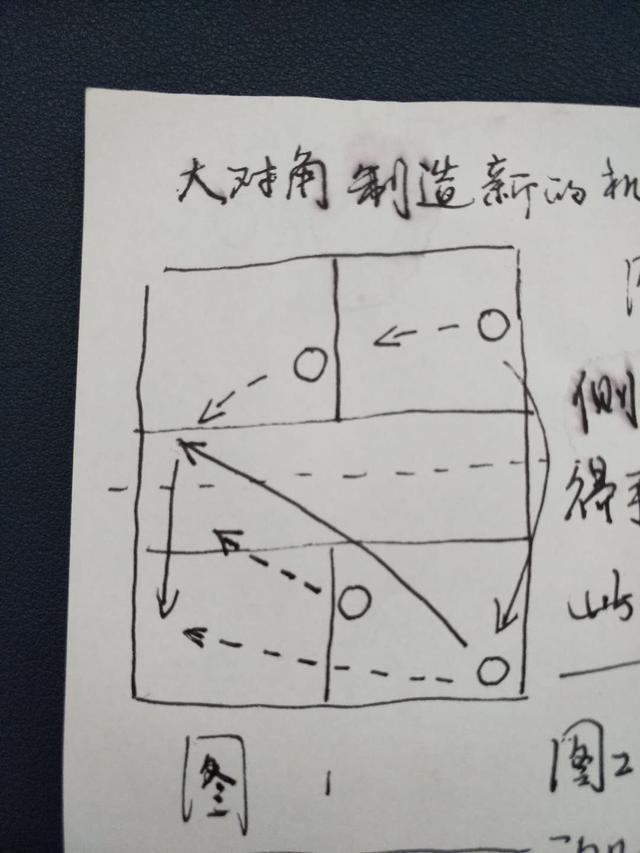 大对角制造新的机
侧
得手
图1
图2